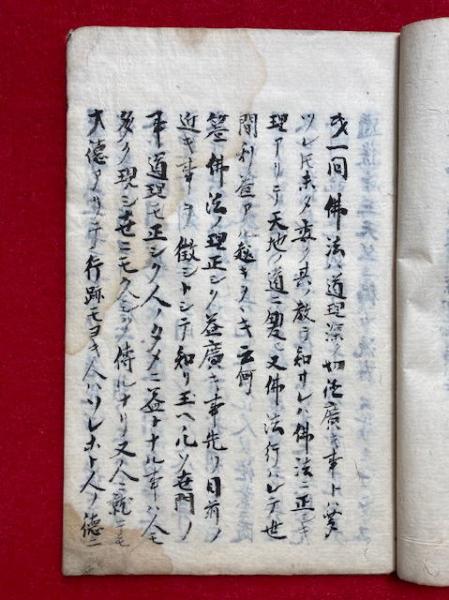 或一問佛法ハ道理深ク功徳廣キ事ト萬
ツレ𪜈未タ委ク其ノ教ヲ知サレハ佛法ニ正シキ
理アリテ天地ノ道ニ契ヒ又佛法行ハレテ世
間利益アル趣キヲキ云何
答佛法ノ理正シク益廣キ事先ツ目前ノ
近キ事ヲ徴シトシテ知リ玉ヘ凡ソ世間ノ
事道理モ正シク人ノタメニ益トナル事ハ人モ
多ク現シ世ニモ久シク侍ルナリ又人ニ就テモ
大德アリテ行跡モヨキ人ハソレホト人ノ德ニ